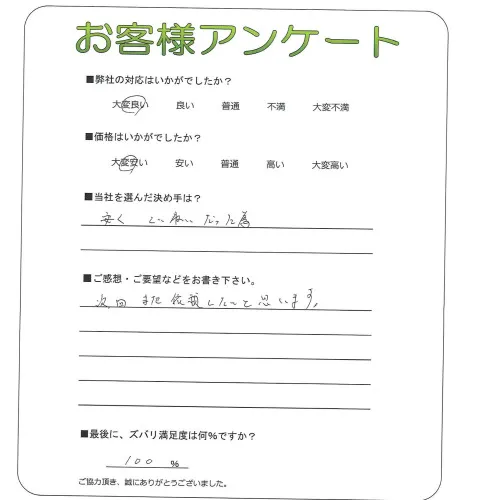 お客様アンケート
■弊社の対応はいかがでしたか？
大変良い 良い 普通 不満 大変不満
■価格はいかがでしたか？
大変安い 安い 普通 高い 大変高い
■当社を選んだ決め手は？
安く だった為
■ご感想・ご要望などをお書き下さい。
次回また依頼したいと思います。
■最後に、ズバリ満足度は何％ですか？
100 ％
ご協力頂き、誠にありがとうございました。